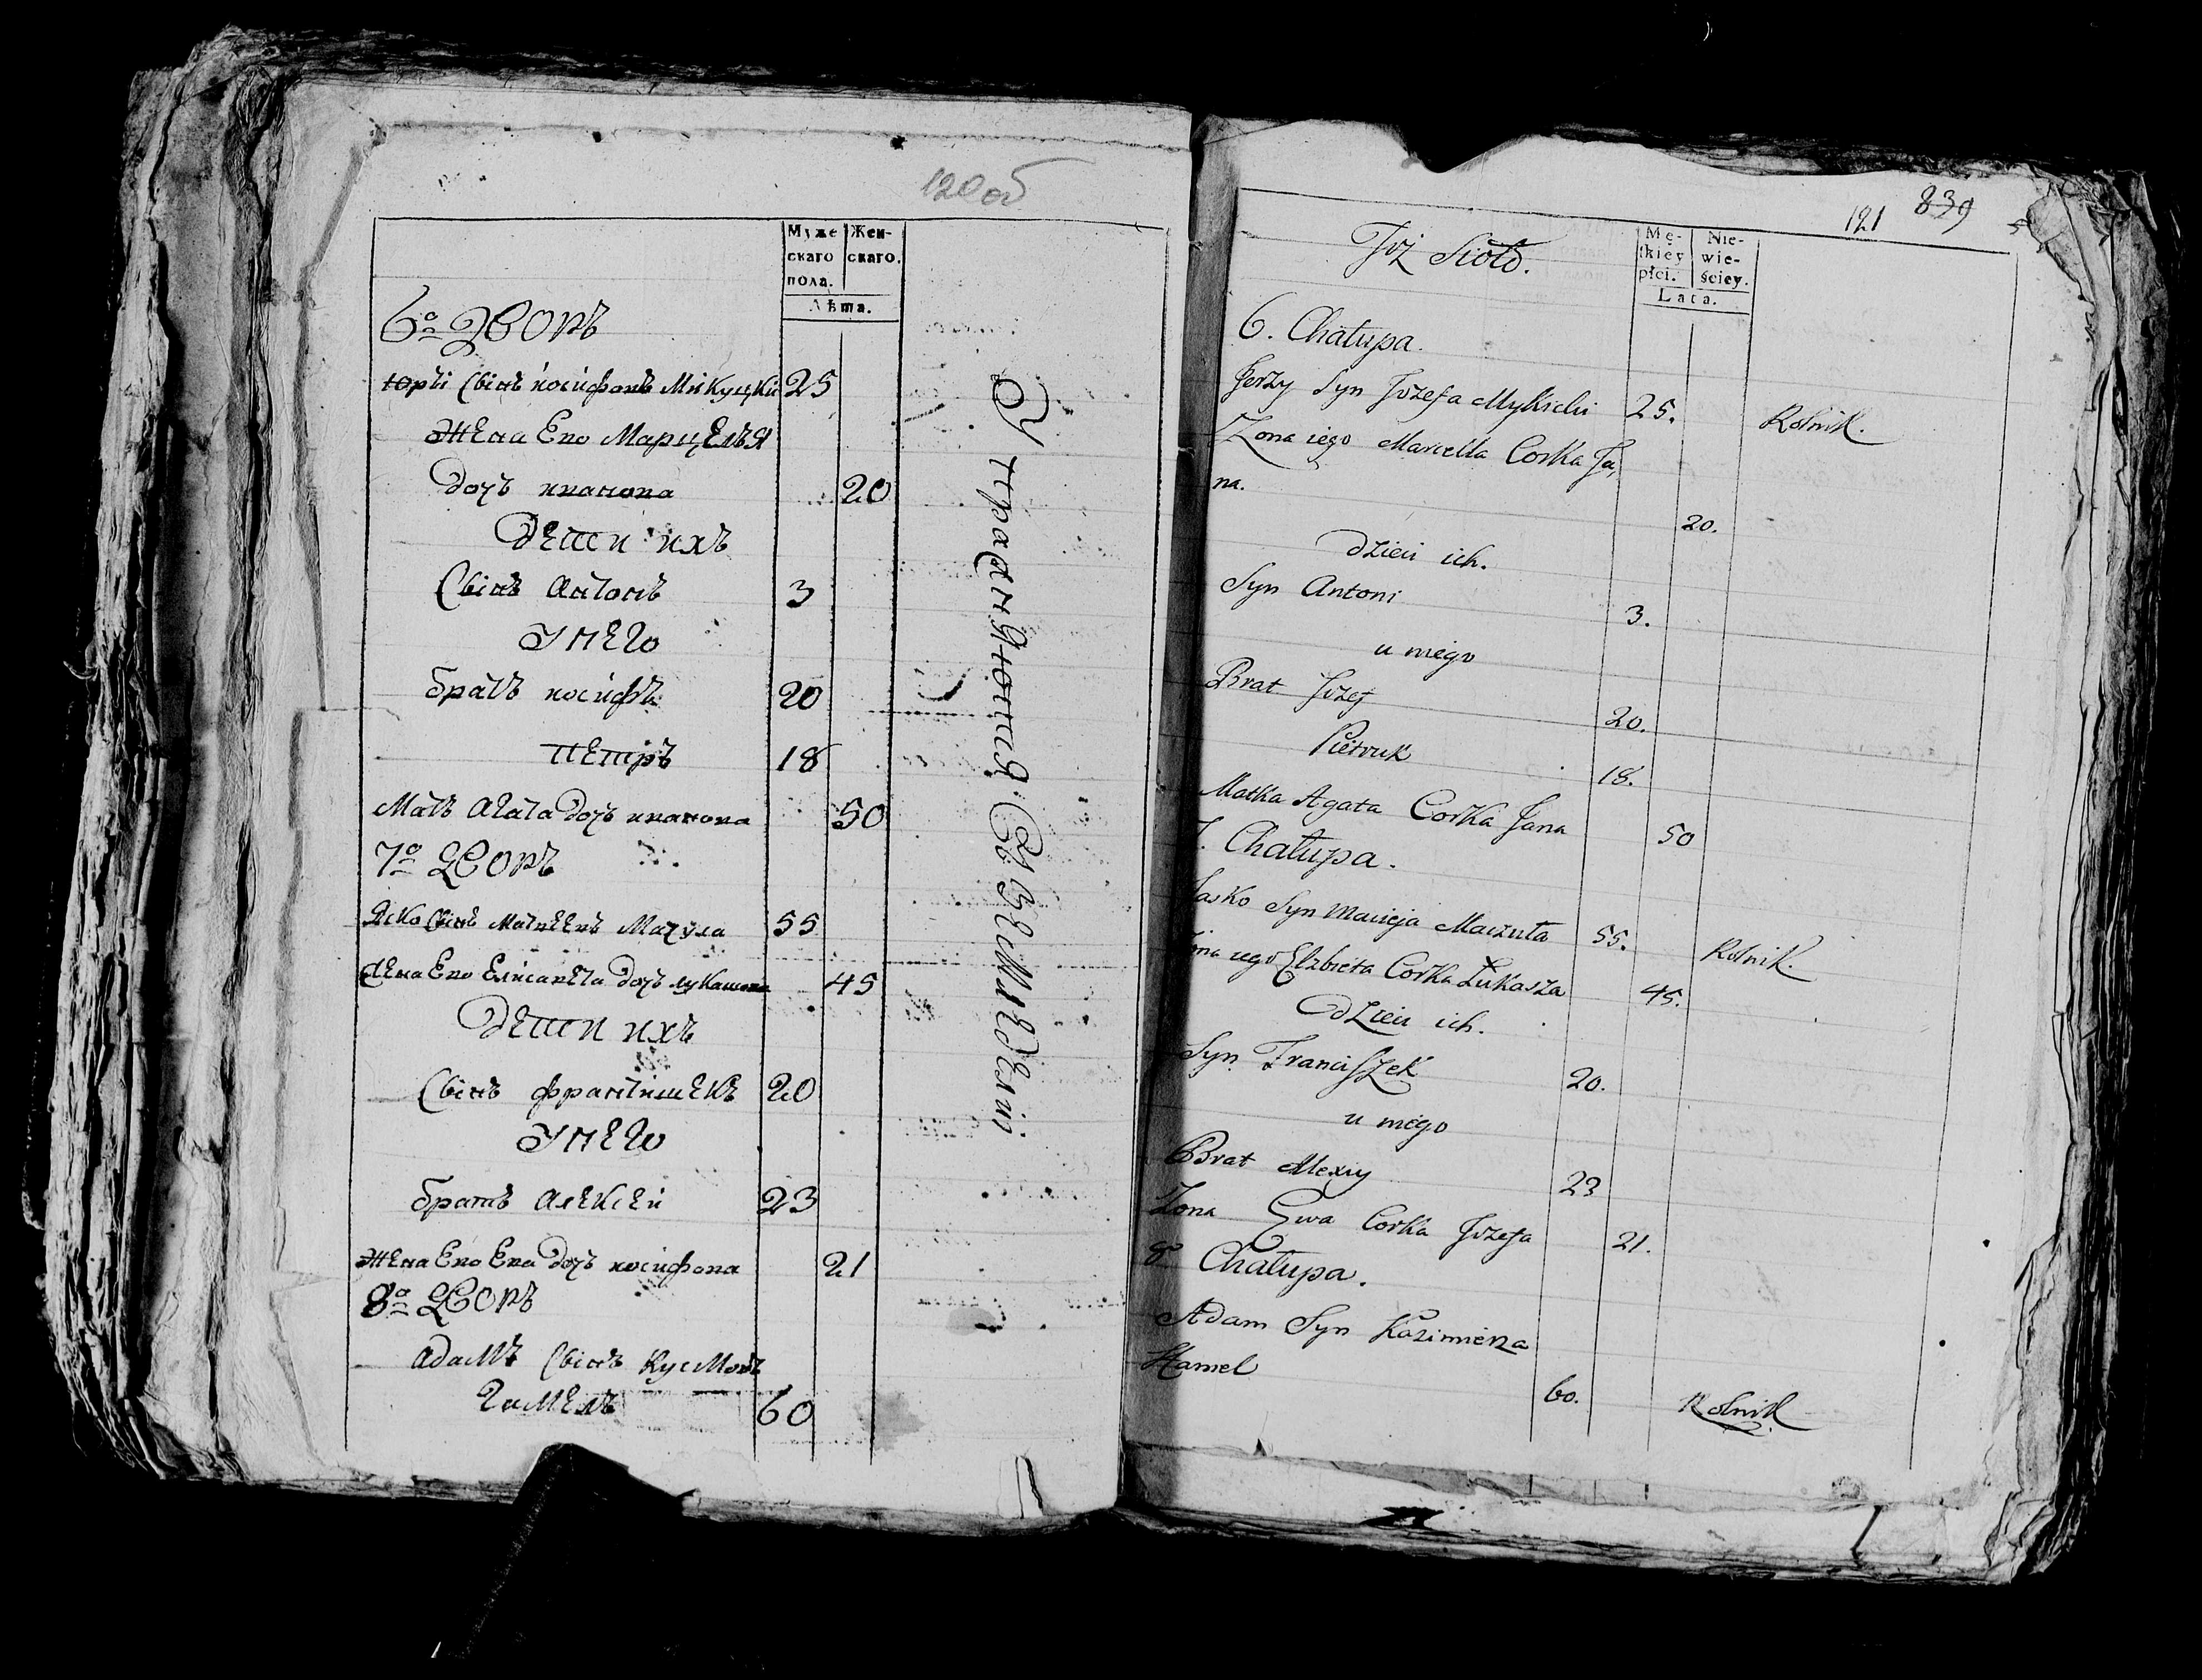 120об
Муже
скаго
пола.
Жен-
скаго.
Лѣта.
6о Дворъ
Юрьi Сынъ иосифовъ Микуцкiи 25
Жена Ево Марцелья
дочь иванова 20
Дети ихъ
Сынъ Антонъ 3
У него
братъ иосифъ 20
Петръ 18
Мать Агата дочь иванова 50
7о Дворъ
Яско Сынъ Матвеевъ Мачула 55
Жена Ево Елисавета дочь лукашова 45
Дети ихъ
Сынъ францишекъ 20
У него
братъ Алексей 23
Жена Ево Ева дочь иосифова 21
8о Дворъ
Адамъ Сынъ
Гамель 60
Упражняются Въ Земледелiи
121 839
Toż Sioło.
Mę-
skiey
płci.
Nie-
wie-
ściey.
Lata.
6. Chałupa.
Jerzy Syn Jozefa Mykicki 25. Rolnik.
Zona iego Marcella Corka Ja,
na. 20.
dzieci ich.
Syn Antoni 3.
u niego
Brat Jozef 20.
Pietruk 18.
Matka Agata Corka Jana 50
7. Chałupa.
Jasko Syn Macieja Maczuła 55. Rolnik.
Zona iego Elzbieta Corka Łukasza 45.
dzieci ich.
Syn Franciszek 20.
u niego
Brat Alexy 23
Zona Ewa Corka Jozefa 21.
8o Chałupa.
Adam Syn Kazimierza
Hamel 60. Rolnik